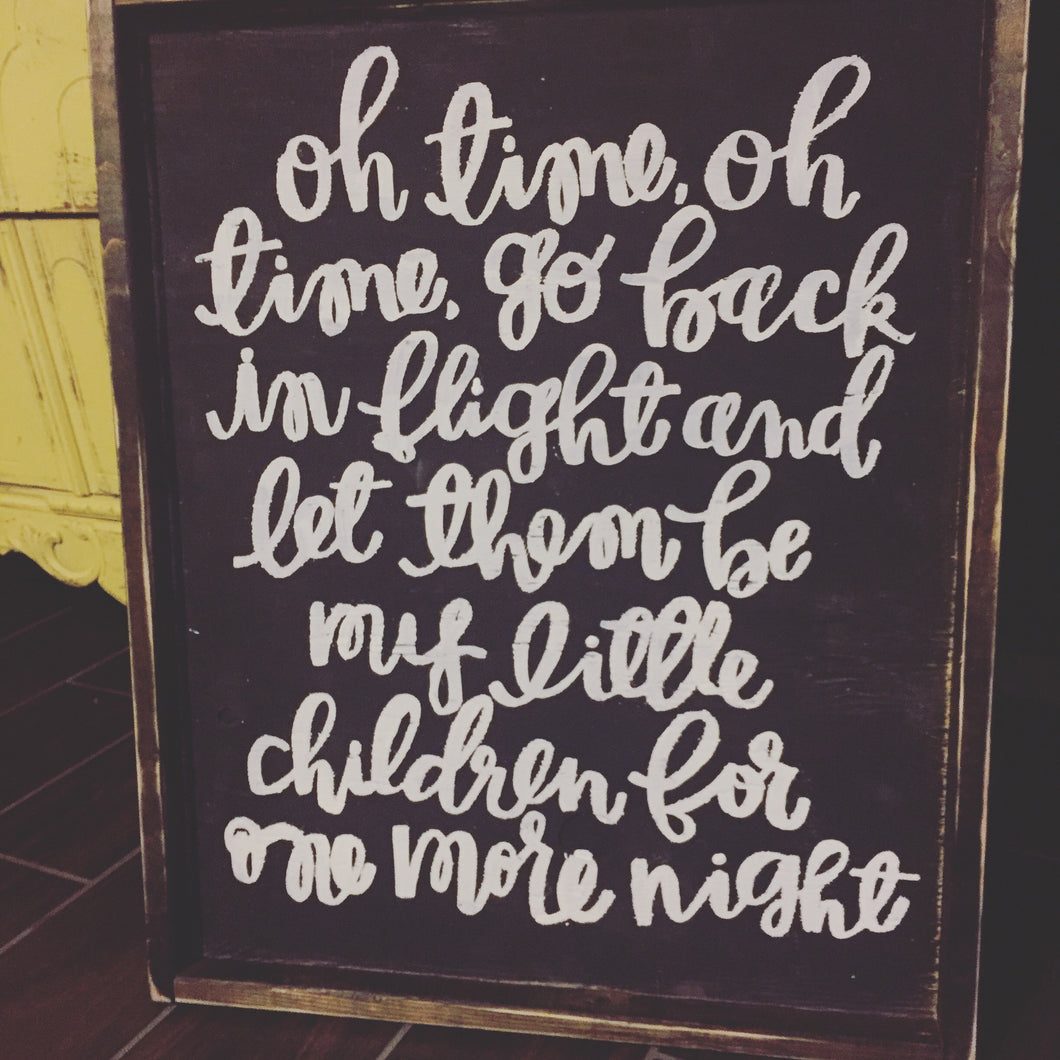 oh time, oh
time, go back
in flight and
let them be
my little
children for
one more night